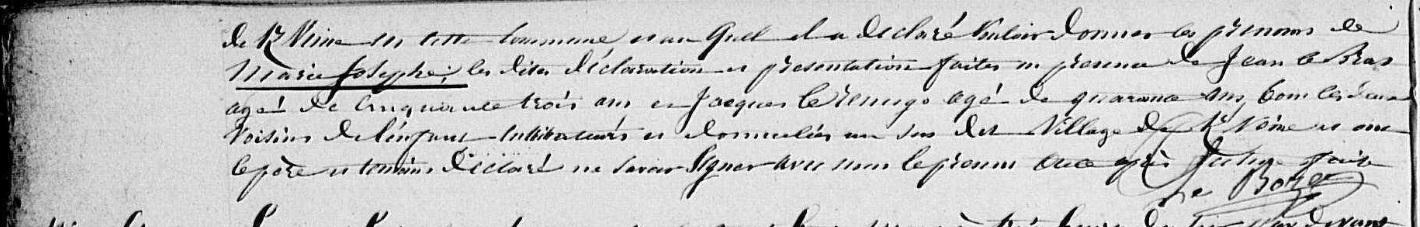 de Kvéno en cette Commune et auquel il a déclaré vouloir donner les prénoms de
Marie Josèphe; les dites déclaration et présentation faites en présence de Jean le Bras
agé de cinquante trois ans et Jacques le agé de quarante ans, tous les deux
voisins de l'enfant cultivateurs et domiciliés au sus dit Village de et ont
le père et témoins déclaré ne savoir signer avec nous le présent acte après lecture faite
Le